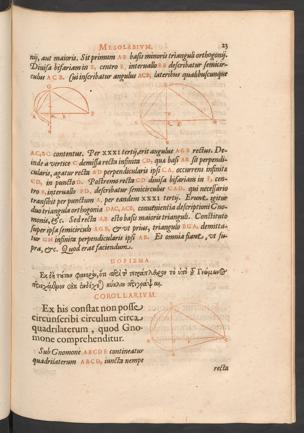 MESOLABIVM. 23
nij, aut maioris. Sit primum AB basis minoris trianguli orthogonij.
Diuisa bifariam in E, centro E, interuallo EB describatur semicir-
culus ACB. Cui inscribatur angulus ACB, lateribus quibuscunque
AC, BC contentus. Per XXXI tertij, erit angulus ACB rectus. De-
inde a vertice C demissa recta infinita CD, qua basi AB sit perpendi-
cularis, agatur recta BD perpendicularis ipsi CA, occurrens infinita
CD, in puncto D. Postremo recta CD diuisa bifariam in F, cen-
tro F, interuallo FD, describatur semicirculus CAD, qui necessario
transibit per punctum A, per eandem XXXI tertij. Erunt igitur
duo triangula orthogonia DAC, ACB, conuenientia descriptioni Gno-
monis, &c. Sed recta AB esto basis maioris trianguli. Constituto
super ipsa semicirculo AGB, & vt prius, triangulo BGA, demitta-
tur GH infinita perpendicularis ipsi AB. Et omnia fiant, vt su-
pra, &c. Quod erat faciendum.
COROLLARIVM.
Ex his constat non posse
circunscribi circulum circa
quadrilaterum, quod Gno-
mone comprehenditur.
Sub Gnomone ABCDE contineatur
quadrilaterum ABCD, iuncta nempe
recta